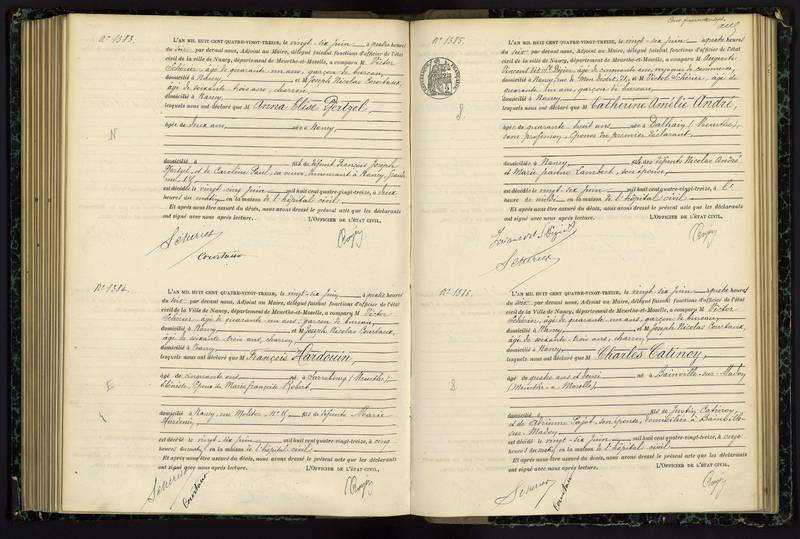 N° 1383.
L'AN MIL HUIT CENT QUATRE-VINGT-TREIZE, le vingt-six juin à quatre heures
du soir par devant nous, Adjoint au Maire, délégué faisant fonctions d'officier de l'état
civil de la ville de Nancy, département de Meurthe-et-Moselle, a comparu M Victor
Schérier, âgé de quarante-un ans, garçon de bureau,
domicilié à Nancy et M Joseph Nicolas Courtaux,
âgé de soixante-trois ans, charron,
domicilié à Nancy
lesquels nous ont déclaré que M Anna Elise
âgée de deux ans, née à Nancy,
N
domicilié à fille de défunt François Joseph
et de Caroline Paul, sa veuve, demeurant à Nancy,
est décédée le vingt-cinq juin mil huit cent quatre-vingt-treize, à deux
heures du matin en la maison de l'hôpital civil.
Et après nous être assuré du décès, nous avons dressé le présent acte que les déclarants
ont signé avec nous après lecture. L'OFFICIER DE L'ÉTAT CIVIL,
N° 1384.
L'AN MIL HUIT CENT QUATRE-VINGT-TREIZE, le vingt-six juin à quatre heures
du soir par devant nous, Adjoint au Maire, délégué faisant fonctions d'officier de l'état
civil de la Ville de Nancy, département de Meurthe-et-Moselle, a comparu M Victor
Schérier, âgé de quarante-un ans, garçon de bureau,
domicilié à Nancy et M Joseph Nicolas Courtaux,
âgé de soixante-trois ans, charron,
domicilié à Nancy
lesquels nous ont déclaré que M François Hardouin,
âgé de cinquante ans né à Sarrebourg (Meurthe),
E
ébéniste, époux de Marie Françoise Robert,
domicilié à Nancy, rue Molitor, fils de défunte Marie
Hardouin,
est décédé le vingt-six juin mil huit cent quatre-vingt-treize, à cinq
heures du matin, en la maison de l'hôpital civil.
Et après nous être assuré du décès, nous avons dressé le présent acte que les déclarants
ont signé avec nous après lecture. L'OFFICIER DE L'ÉTAT CIVIL,
N° 1385.
L'AN MIL HUIT CENT QUATRE-VINGT-TREIZE, le vingt-six juin à quatre heures
du soir par devant nous, Adjoint au Maire, délégué faisant fonctions d'officier de l'état
civil de la ville de Nancy, département de Meurthe-et-Moselle, a comparu M Auguste
Vincent dit St Dizier, âgé de cinquante ans, voyageur de commerce,
domicilié à Nancy, rue et M Victor Schérier, âgé de
quarante-un ans, garçon de bureau,
domicilié à Nancy
lesquels nous ont déclaré que M Catherine Amélie André,
8.
âgée de quarante-huit ans née à Dalhain (Meurthe),
sans profession, épouse du premier déclarant,
domiciliée à Nancy, fille des défunts Nicolas André
et Marie Jeanne Lambert, son épouse,
est décédée le vingt-six juin mil huit cent quatre-vingt-treize, à
heures du matin en la maison de l'hôpital civil.
Et après nous être assuré du décès, nous avons dressé le présent acte que les déclarants
ont signé avec nous après lecture. L'OFFICIER DE L'ÉTAT CIVIL,
N° 1386.
L'AN MIL HUIT CENT QUATRE-VINGT-TREIZE, le vingt-six juin à quatre heures
du soir par devant nous, Adjoint au Maire, délégué faisant fonctions d'officier de l'état
civil de la Ville de Nancy, département de Meurthe-et-Moselle, a comparu M Victor
Schérier, âgé de quarante-un ans, garçon de bureau,
domicilié à Nancy, et M Joseph Nicolas Courtaux,
âgé de soixante-trois ans, charron,
domicilié à Nancy
lesquels nous ont déclaré que M Charles Catiney,
âgé de quatre ans et demi né à Bainville-sur-Madon
8
(Meurthe-et-Moselle),
domicilié à fils de Justin Catiney,
et de son épouse, domiciliés à Bainville-
sur-Madon
est décédé le vingt-six juin mil huit cent quatre-vingt-treize, à onze
heures du matin, en la maison de l'hôpital civil.
Et après nous être assuré du décès, nous avons dressé le présent acte que les déclarants
ont signé avec nous après lecture. L'OFFICIER DE L'ÉTAT CIVIL,